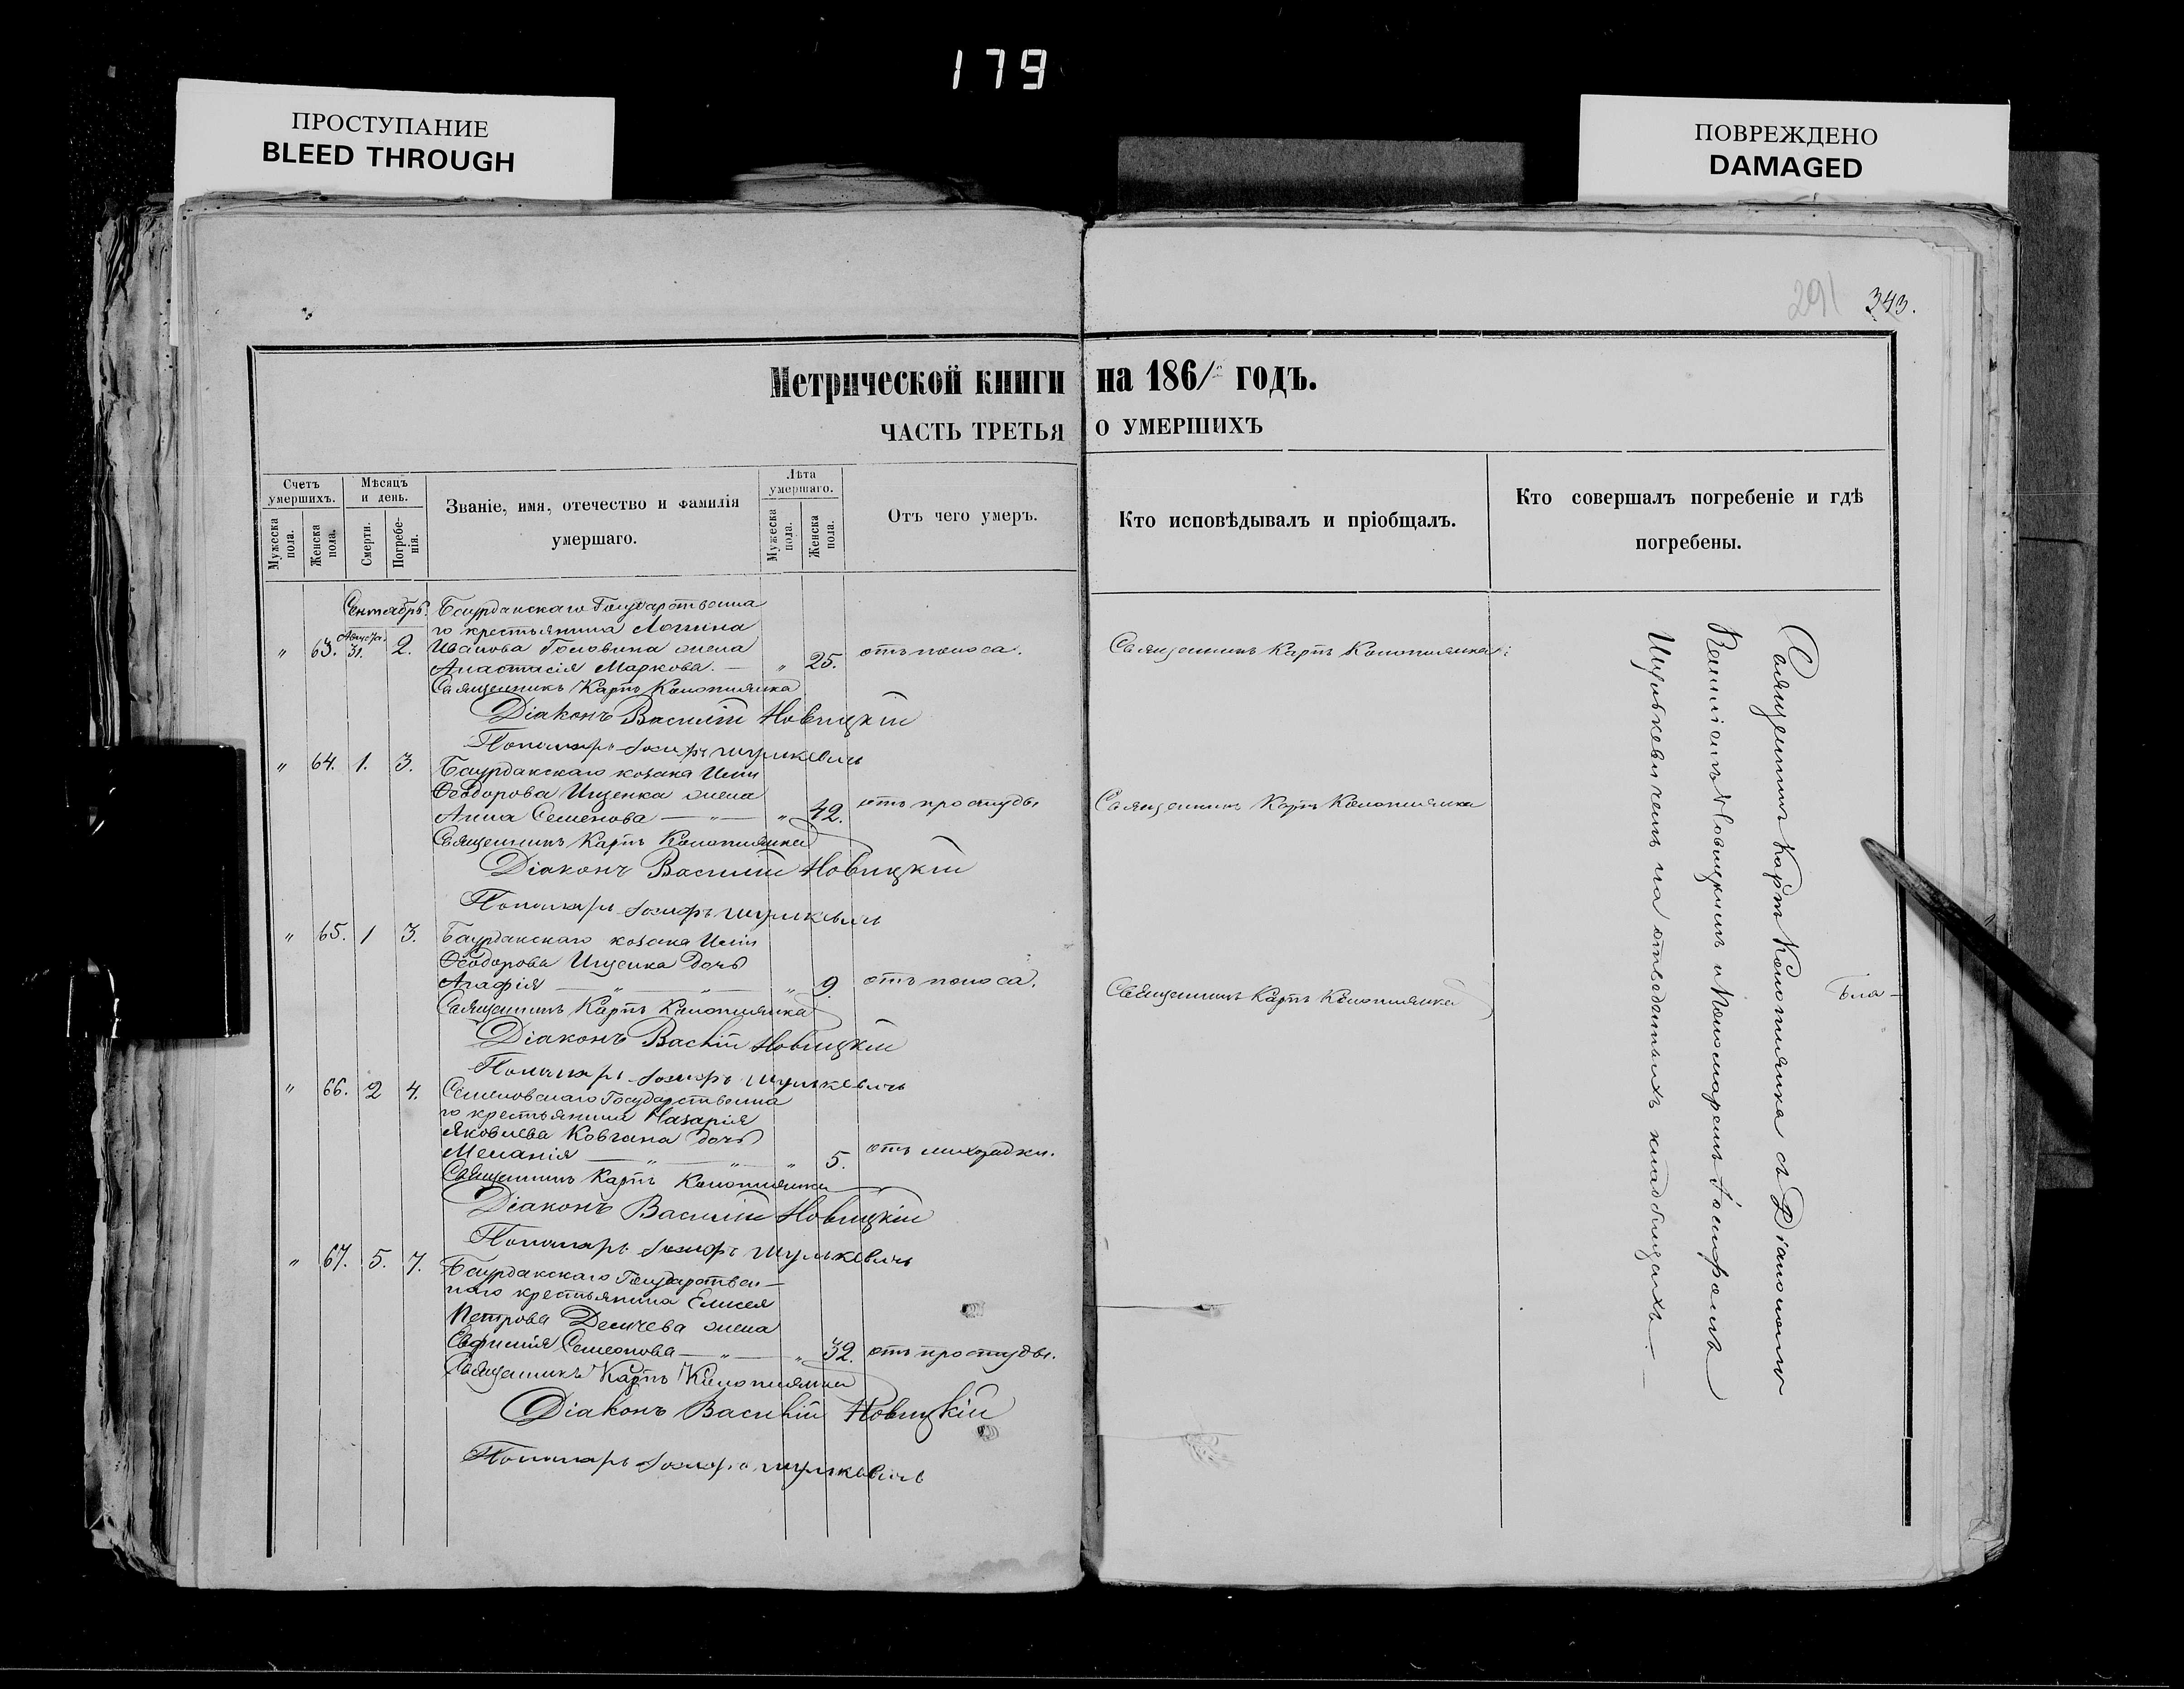 179
ПРОСТУПАНИЕ
BLEED THROUGH
ПОВРЕЖДЕНО
DAMAGED
291 343.
Метрической книги на 1861 годъ.
ЧАСТЬ ТРЕТЬЯ О УМЕРШИХЪ
Счетъ умершихъ.
Мужеска пола.
Женска пола.
Мѣсяцъ и день.
Смерти.
Погребенія.
Званіе, имя, отечество и фамилія умершаго.
Лѣта умершаго.
Мужеска пола.
Женска пола.
Отъ чего умеръ.
Кто исповѣдывалъ и пріобщалъ.
Кто совершалъ погребеніе и гдѣ погребены.
Сентябрь.
Баурдакскаго Государственна
го крестьянина Логгина
" 63. Августа 31. 2. Иванова Головина жена
Анастасія Маркова. — " 25. отъ поноса. Священникъ Карпъ Колотилянка
Священникъ Карпъ Колотилянка
Діаконъ Василій Новицкій
Пономарь Іосифъ
" 64. 1. 3. Баурдакскаго козака Иліи
Ѳеодорова Ищенка жена
Анна Семенова — " — " 42. отъ простуды Священникъ Карпъ Колотилянка
Священникъ Карпъ Колотилянка
Діаконъ Василій Новицкій
Пономарь Іосифъ
" 65. 1 3. Баурдакскаго козака Иліи
Ѳеодорова Ищенка дочь
Агафія — " — " 9. отъ поноса. Священникъ Карпъ Колотилянка
Священникъ Карпъ Колотилянка
Діаконъ Василій Новицкій
Пономарь Іосифъ
" 66. 2 4. Семеновскаго Государственна
го крестьянина Назарія
Яковлева Ковгана дочь
Меланія — " — " — " 5. отъ лихорадки.
Священникъ Карпъ Колотилянка
Діаконъ Василій Новицкій
Пономарь Іосифъ
" 67. 5. 7. Баурдакскаго Государствен-
наго крестьянина Елисея
Петрова жена
Евфимія Семеонова — " — " 32. отъ простуды.
Священникъ Карпъ Колотилянка
Діаконъ Василій Новицкій
Пономарь Іосифъ
Священникъ Карпъ Колотилянка съ Діакономъ
Новицкимъ и Пономаремъ Іосифомъ
на отведенныхъ кладбищахъ. —